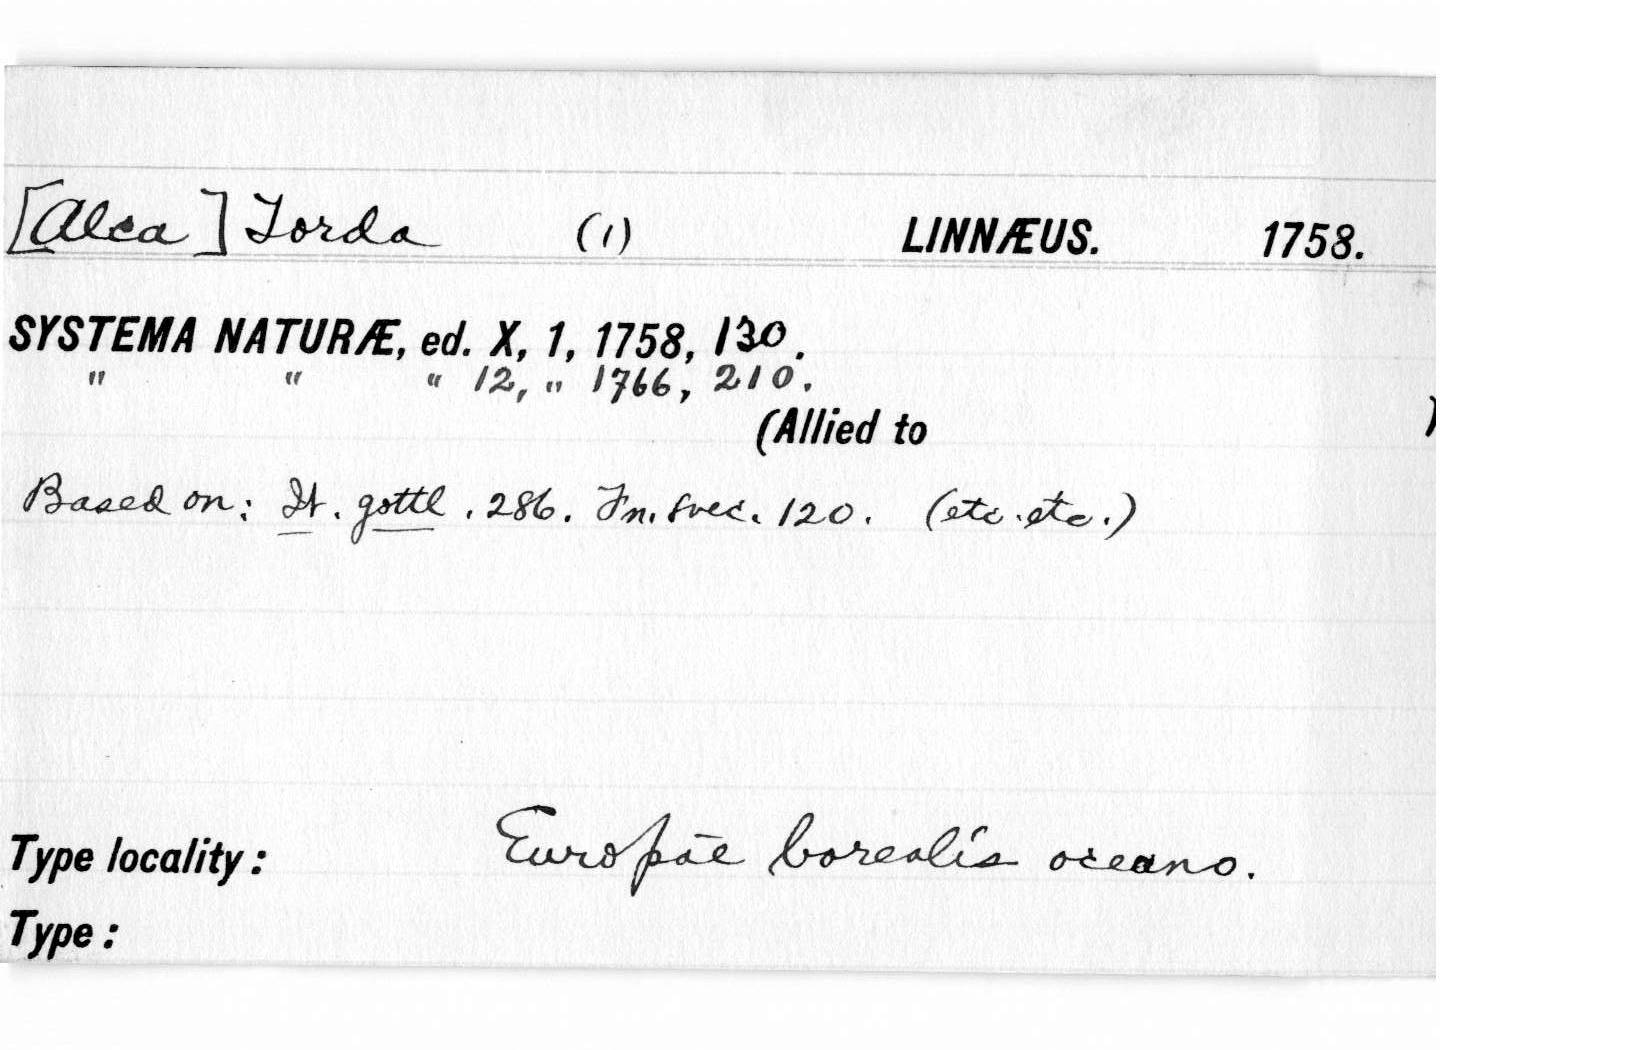 [Alca] Torda (1) LINNÆUS. 1758.
SYSTEMA NATURÆ, ed. X, 1, 1758, 130.
" " " 12, " 1766, 210.
(Allied to )
Based on: It. gottl. 286. Fn. svec. 120. (etc. etc.)
Type locality: Europae borealis oceano.
Type: